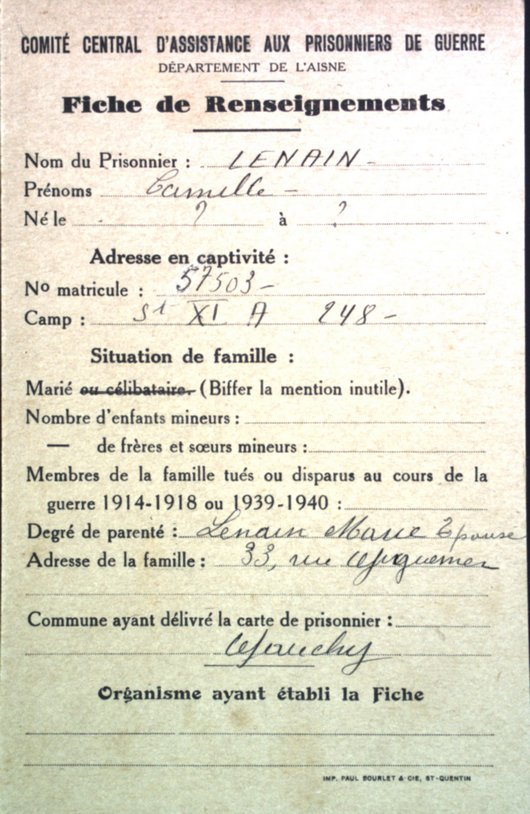 COMITÉ CENTRAL D'ASSISTANCE AUX PRISONNIERS DE GUERRE
DÉPARTEMENT DE L'AISNE
Fiche de Renseignements
Nom du Prisonnier : LENAIN -
Prénoms Camille -
Né le ? à ?
Adresse en captivité :
No matricule : 57503 -
Camp : St XI A 248 -
Situation de famille :
Marié ou célibataire. (Biffer la mention inutile).
Nombre d'enfants mineurs :
— de frères et sœurs mineurs :
Membres de la famille tués ou disparus au cours de la
guerre 1914-1918 ou 1939-1940 :
Degré de parenté : Lenain Marie Epouse
Adresse de la famille : 33, rue Guynemer
Commune ayant délivré la carte de prisonnier :
Gauchy
Organisme ayant établi la Fiche
IMP. PAUL BOURLET & CIE, ST-QUENTIN